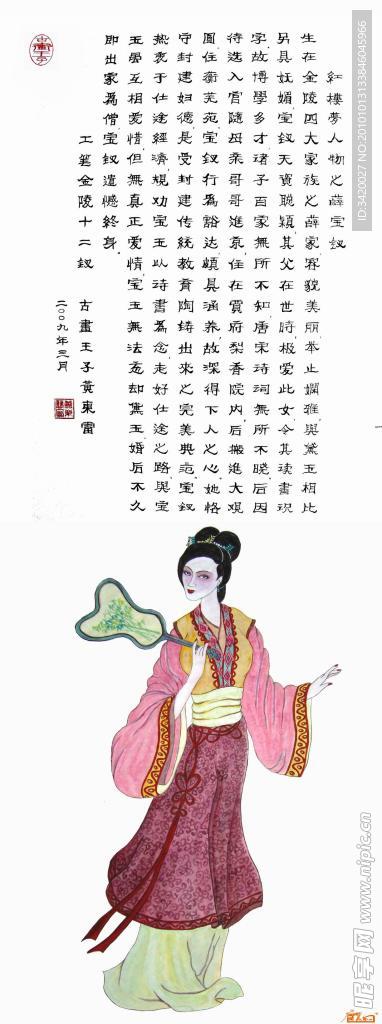 紅樓夢人物之薛宝釵
生在金陵四大家族之薛家容貌美丽举止嫻雅與黛玉相比
另具妩媚宝釵天資聪颖其父在世時极爱此女令其读書現
字故博學多才诸子百家無所不知唐宋诗词無所不晓后因
待选入宫随母亲哥哥進京住在賈府梨香院内后搬進大观
園住蘅芜苑宝釵行為豁达頗具涵养故深得下人之心她恪
守封建妇德是受封建传統教育陶鋳出來之完美典范宝釵
热衷于仕途經濟規劝宝玉以诗書為念走好仕途之路與宝
玉虽互相爱惜但無真正爱情宝玉無法忘却黛玉婚后不久
即出家為僧宝釵遺憾終身
工笔金陵十二釵
古畫王子黃東雷
二〇〇九年三月
ID:3420027 NO:20101013133846045966
昵享网 www.nipic.cn